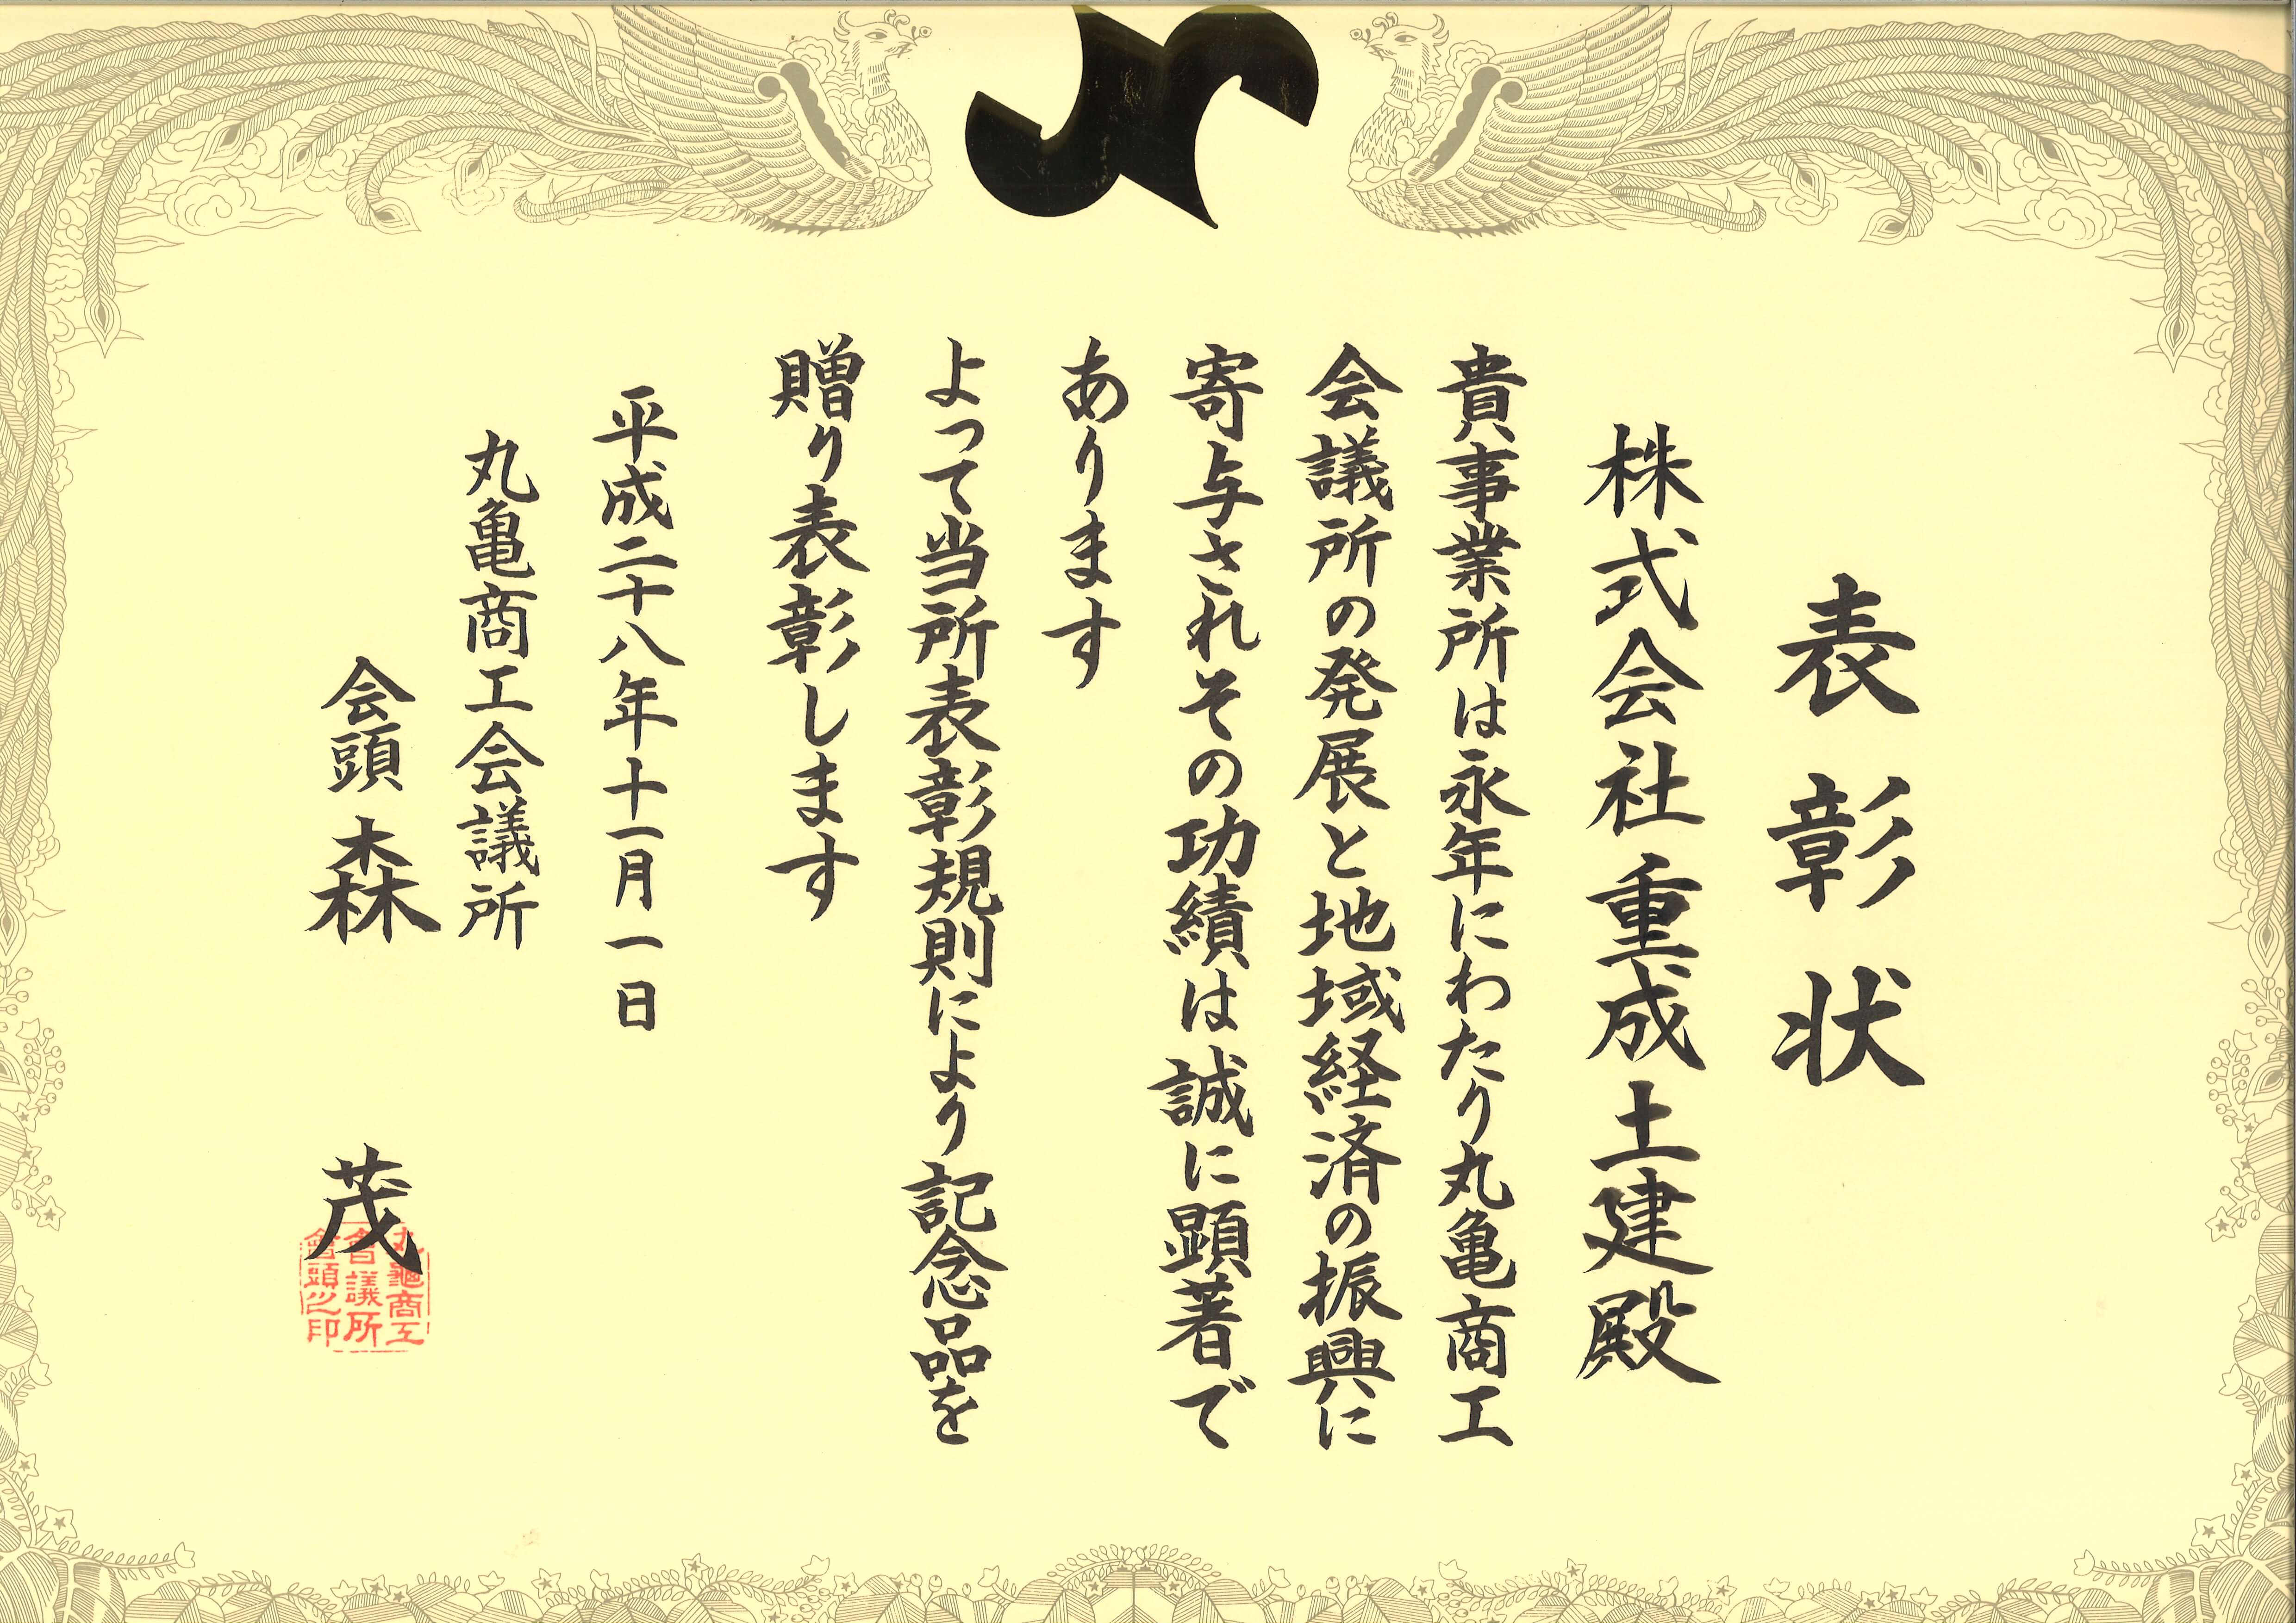 表彰状
株式会社重成土建殿
貴事業所は永年にわたり丸亀商工
会議所の発展と地域経済の振興に
寄与されその功績は誠に顕著で
あります
よって当所表彰規則により記念品を
贈り表彰します
平成二十八年十一月一日
丸亀商工会議所
会頭 森 茂
丸龜商工
會議所
會頭之印